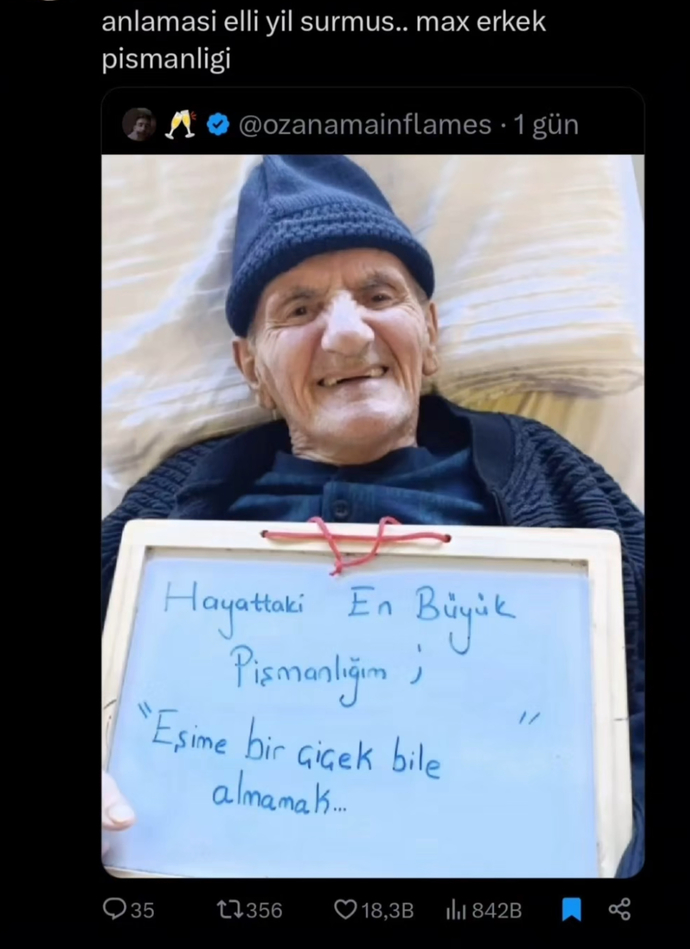 anlamasi elli yil surmus.. max erkek
pismanligi
@ozanamainflames · 1 gün
Hayattaki En Büyük
Pişmanlığım ;
"Eşime bir çiçek bile "
almamak...
35 356 18,3B 842B